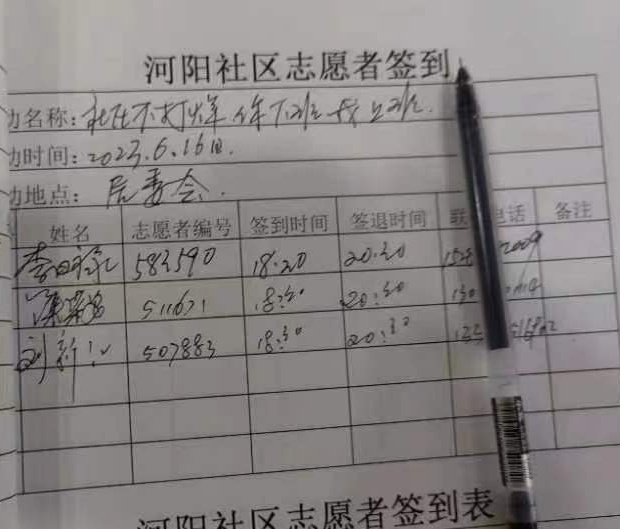 河阳社区志愿者签到
动名称：社区不打烊 你下班我上班.
动时间：2023.6.16日.
动地点：居委会.
姓名 志愿者编号 签到时间 签退时间 联 电话 备注
583590 18:20 20:30 2009
511671 18:30 20:30
刘新 507883 18:30 20:30
河阳社区志愿者签到表